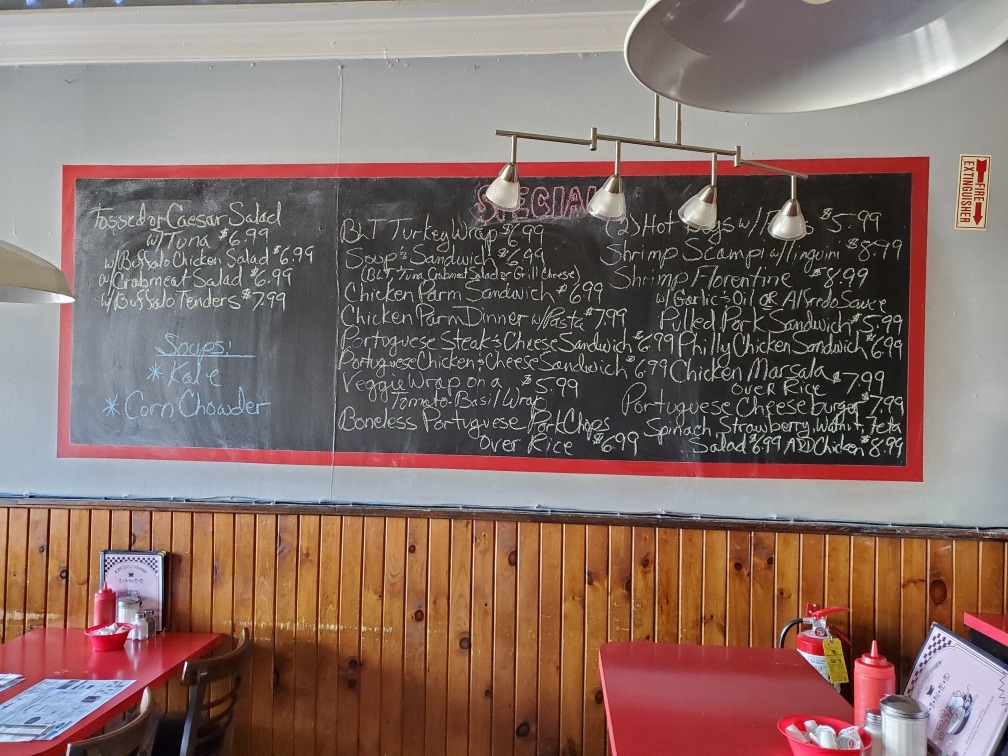 Tossed or Caesar Salad
w/Tuna $6.99
w/Buffalo Chicken Salad $6.99
w/Crabmeat Salad $6.99
w/Buffalo Tenders $7.99
Soups:
*Kale
*Corn Chowder
SPECIAL
BLT Turkey Wrap $6.99
Soup & Sandwich $6.99
(BLT, Tuna, Crabmeat Salad or Grill Cheese)
Chicken Parm Sandwich $6.99
Chicken Parm Dinner w/Pasta $7.99
Portuguese Steak & Cheese Sandwich $6.99
Portuguese Chicken & Cheese Sandwich $6.99
Veggie Wrap on a $5.99
Tomato-Basil Wrap
Boneless Portuguese Pork Chops
Over Rice $6.99
(2) Hot Dogs w/ $5.99
Shrimp Scampi w/Linguini $8.99
Shrimp Florentine $8.99
w/Garlic & Oil OR Alfredo Sauce
Pulled Pork Sandwich $5.99
Philly Chicken Sandwich $6.99
Chicken Marsala $7.99
Over Rice
Portuguese Cheeseburger $7.99
Spinach, Strawberry, Walnut, Feta
Salad $6.99 ADD Chicken $8.99
FIRE
EXTINGUISHER
DINER